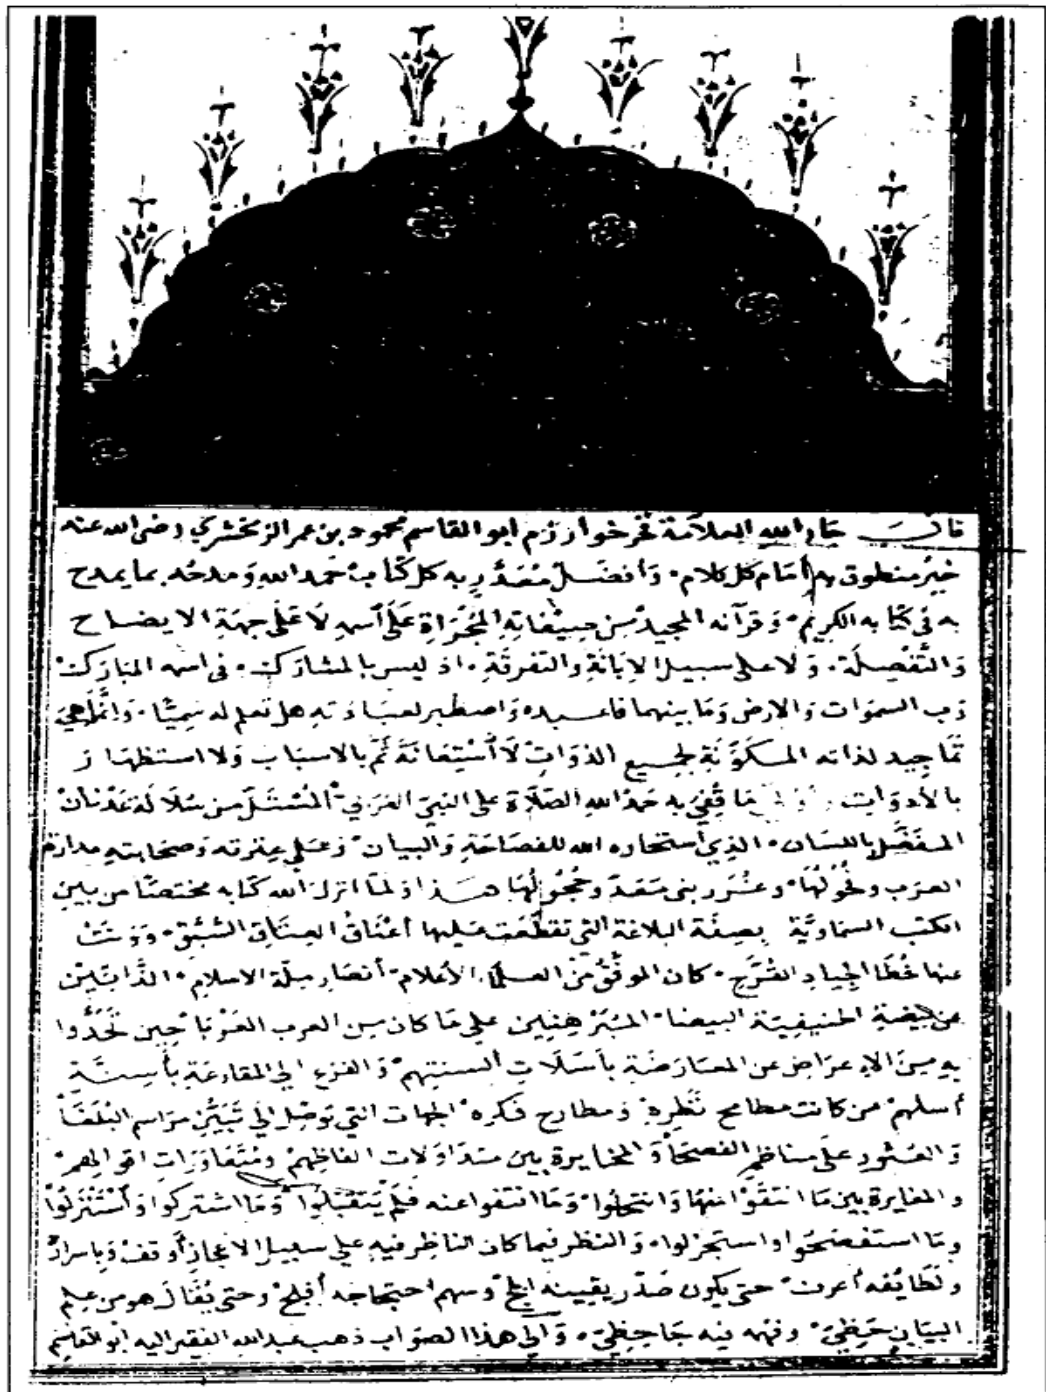 قال جار الله العلامة فخر خوارزم ابو القاسم محمود بن عمر الزمخشري رضى الله عنه
خير منطوق به أمام كل كلام وأفضل مصدر به كل كتاب حمد الله ومدحه بما يمدح
به فى كتابه الكريم وقرآنه المجيد من صفاته المجراة على اسمه لا على جهة الايضاح
والتفصلة ولا على سبيل الابانة والتفرقة اذ ليس بالمشارك فى اسمه المبارك
رب السموات والارض وما بينهما فاعبده واصطبر لعبادته هل تعلم له سميّا وانما هي
تماجيد لذاته المكونة لجميع الذوات لا استعانة ثم بالاسباب ولا استظهار
بالأدوات وأولى ما قفي به حمد الله الصلاة على النبي العربي المستل من سلالة عدنان
المفضل باللسان الذي استخاره الله للفصاحة والبيان وعلى عترته وصحابته مدارة
العرب وفحولها وغرر بنى معد وحجولها هذا ولما انزل الله كتابه مختصا من بين
الكتب السماوية بصفة البلاغة التي تقطعت عليها أعناق العتاق السبق وونت
عنها خطا الجياد القرح كان الموفق من العلماء الأعلام أنصار ملة الاسلام الذابين
عن بيضة الحنيفية البيضا المبرهنين على ما كان من العرب العربا حين تحدوا
به من الاعراض عن المعارضة بأسلات ألسنتهم والفزع الي المقارعة بأسنة
أسلهم من كانت مطامح نظره ومطارح فكره الجهات التي توصل الي تبين مراسم البلغا
والعثور على مناظم الفصحا والمخايرة بين متداولات الفاظهم ومتعاورات اقوالهم
والمغايرة بين ما انتقوا منها وانتخلوا وما انتفوا عنه فلم يتقبلوا وما استركوا واستنزلوا
وما استفصحوا واستجزلوا والنظر فيما كان الناظر فيه على سبيل الاعجاز أوقف وبأسراره
ولطائفه أعرف حتى يكون صدر يقينه أثلج وسهم احتجاجه أفلج وحتى يقال هو من علم
البيان حظي وفهمه فيه جاحظي والي هذا الصواب ذهب عبد الله الفقير اليه ابو القاسم